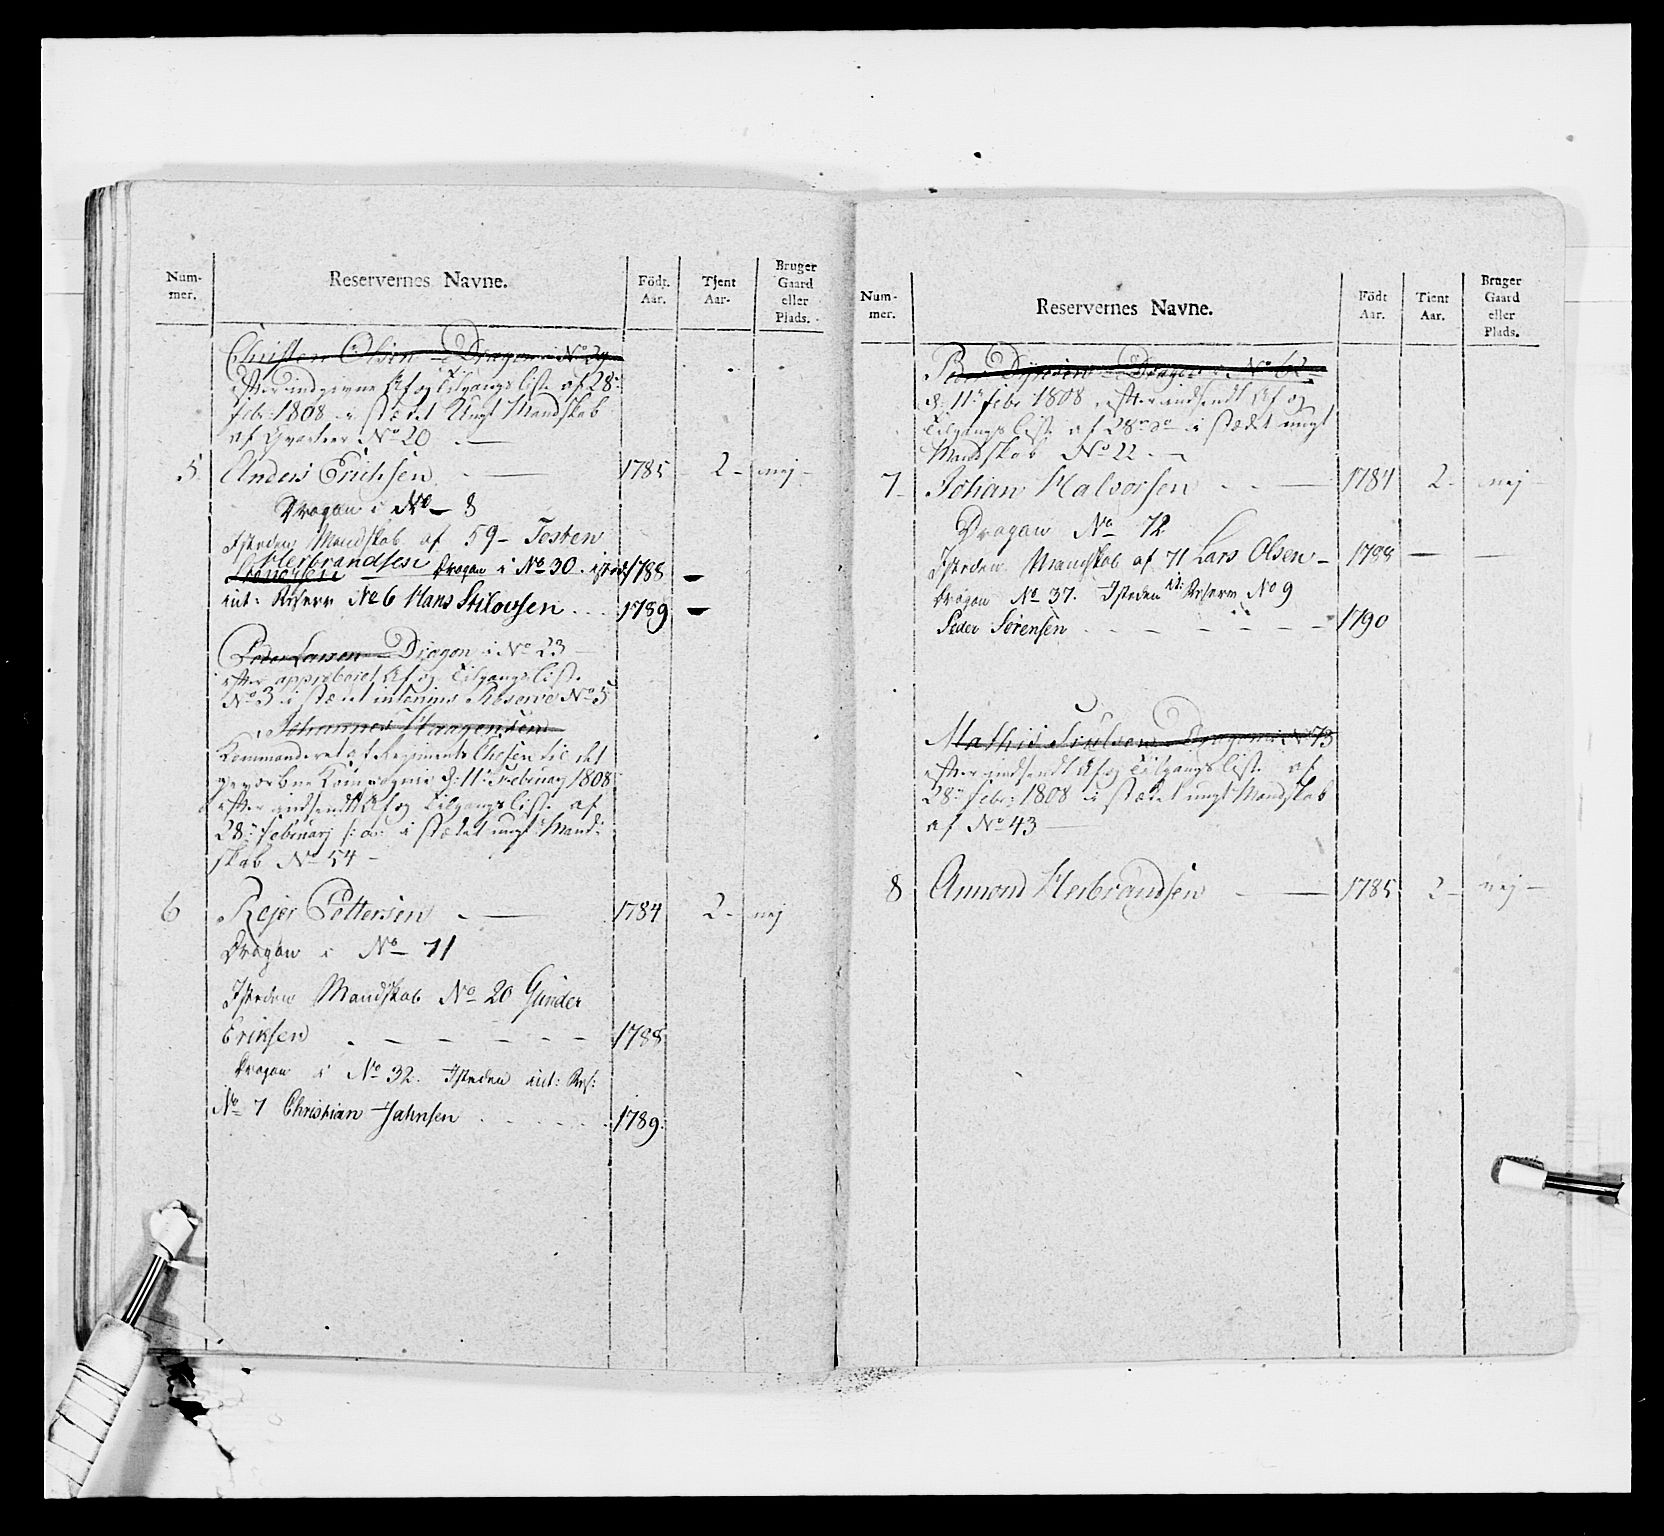 Num-
mer.
Reservernes Navne.
Födt.
Aar.
Tjent
Aar.
Bruger
Gaard
eller
Plads.
Christen Olsen - Dragon i No 29
efter indgivne Af og Tilgangs Liste af 28de
febr: 1808 - i stædet Ungt Mandskab
af No 20
5. Anders Erichsen 1785 2 - nej -
Dragon i No 8
Isteden Mandskab af 59 - Tosten
Herbrandsen
Dragon i No 30. isted: 1788 -
int: Reserv No 6 Hans . . . 1789 -
Peder Larsen - Dragon i No 23
efter approberet Af og Tilgangs Liste
No 3 i stædet interims Reserve No 5
Johannes Haagensen
Kommanderet af Regiments Chefen til det
gevorbne Kompagnie d: 11te Februarj 1808
efter indsendt Af og Tilgangs Liste af
28de Februarj s: a: i stædet ungt Mand-
skab No 54 -
6 Rejer Pettersen 1784 2 - nej
Dragon i No 71
Isteden Mandskab No 20 Gunder
Eriksen 1788
Dragon i No 32. Isteden int: Res:
No 7 Christian Jahnsen 1789.
Num-
mer.
Reservernes Navne.
Födt
Aar.
Tient
Aar.
Bruger
Gaard
eller
Plads.
Peder - Dragon i No 62
d: 11te febr 1808 efter indsendt Af og
Tilgangs Liste af 28de do i stædet ungt
Mandskab No 22
7 Johan Halvorsen 1784 2 - nej -
Dragon No 12
Isteden Mandskab af 71 Lars Olsen - 1788 - -
Dragon No 37. Isteden int: Reserve No 9
Peder Sørensen 1790
Mathis - Dragon i No 73
efter indsendt Af og Tilgangs Liste af
28de febr: 1808 i stædet ungt Mandskab
af No 43
8 Amond Herbrandsen 1785 2 - nej -